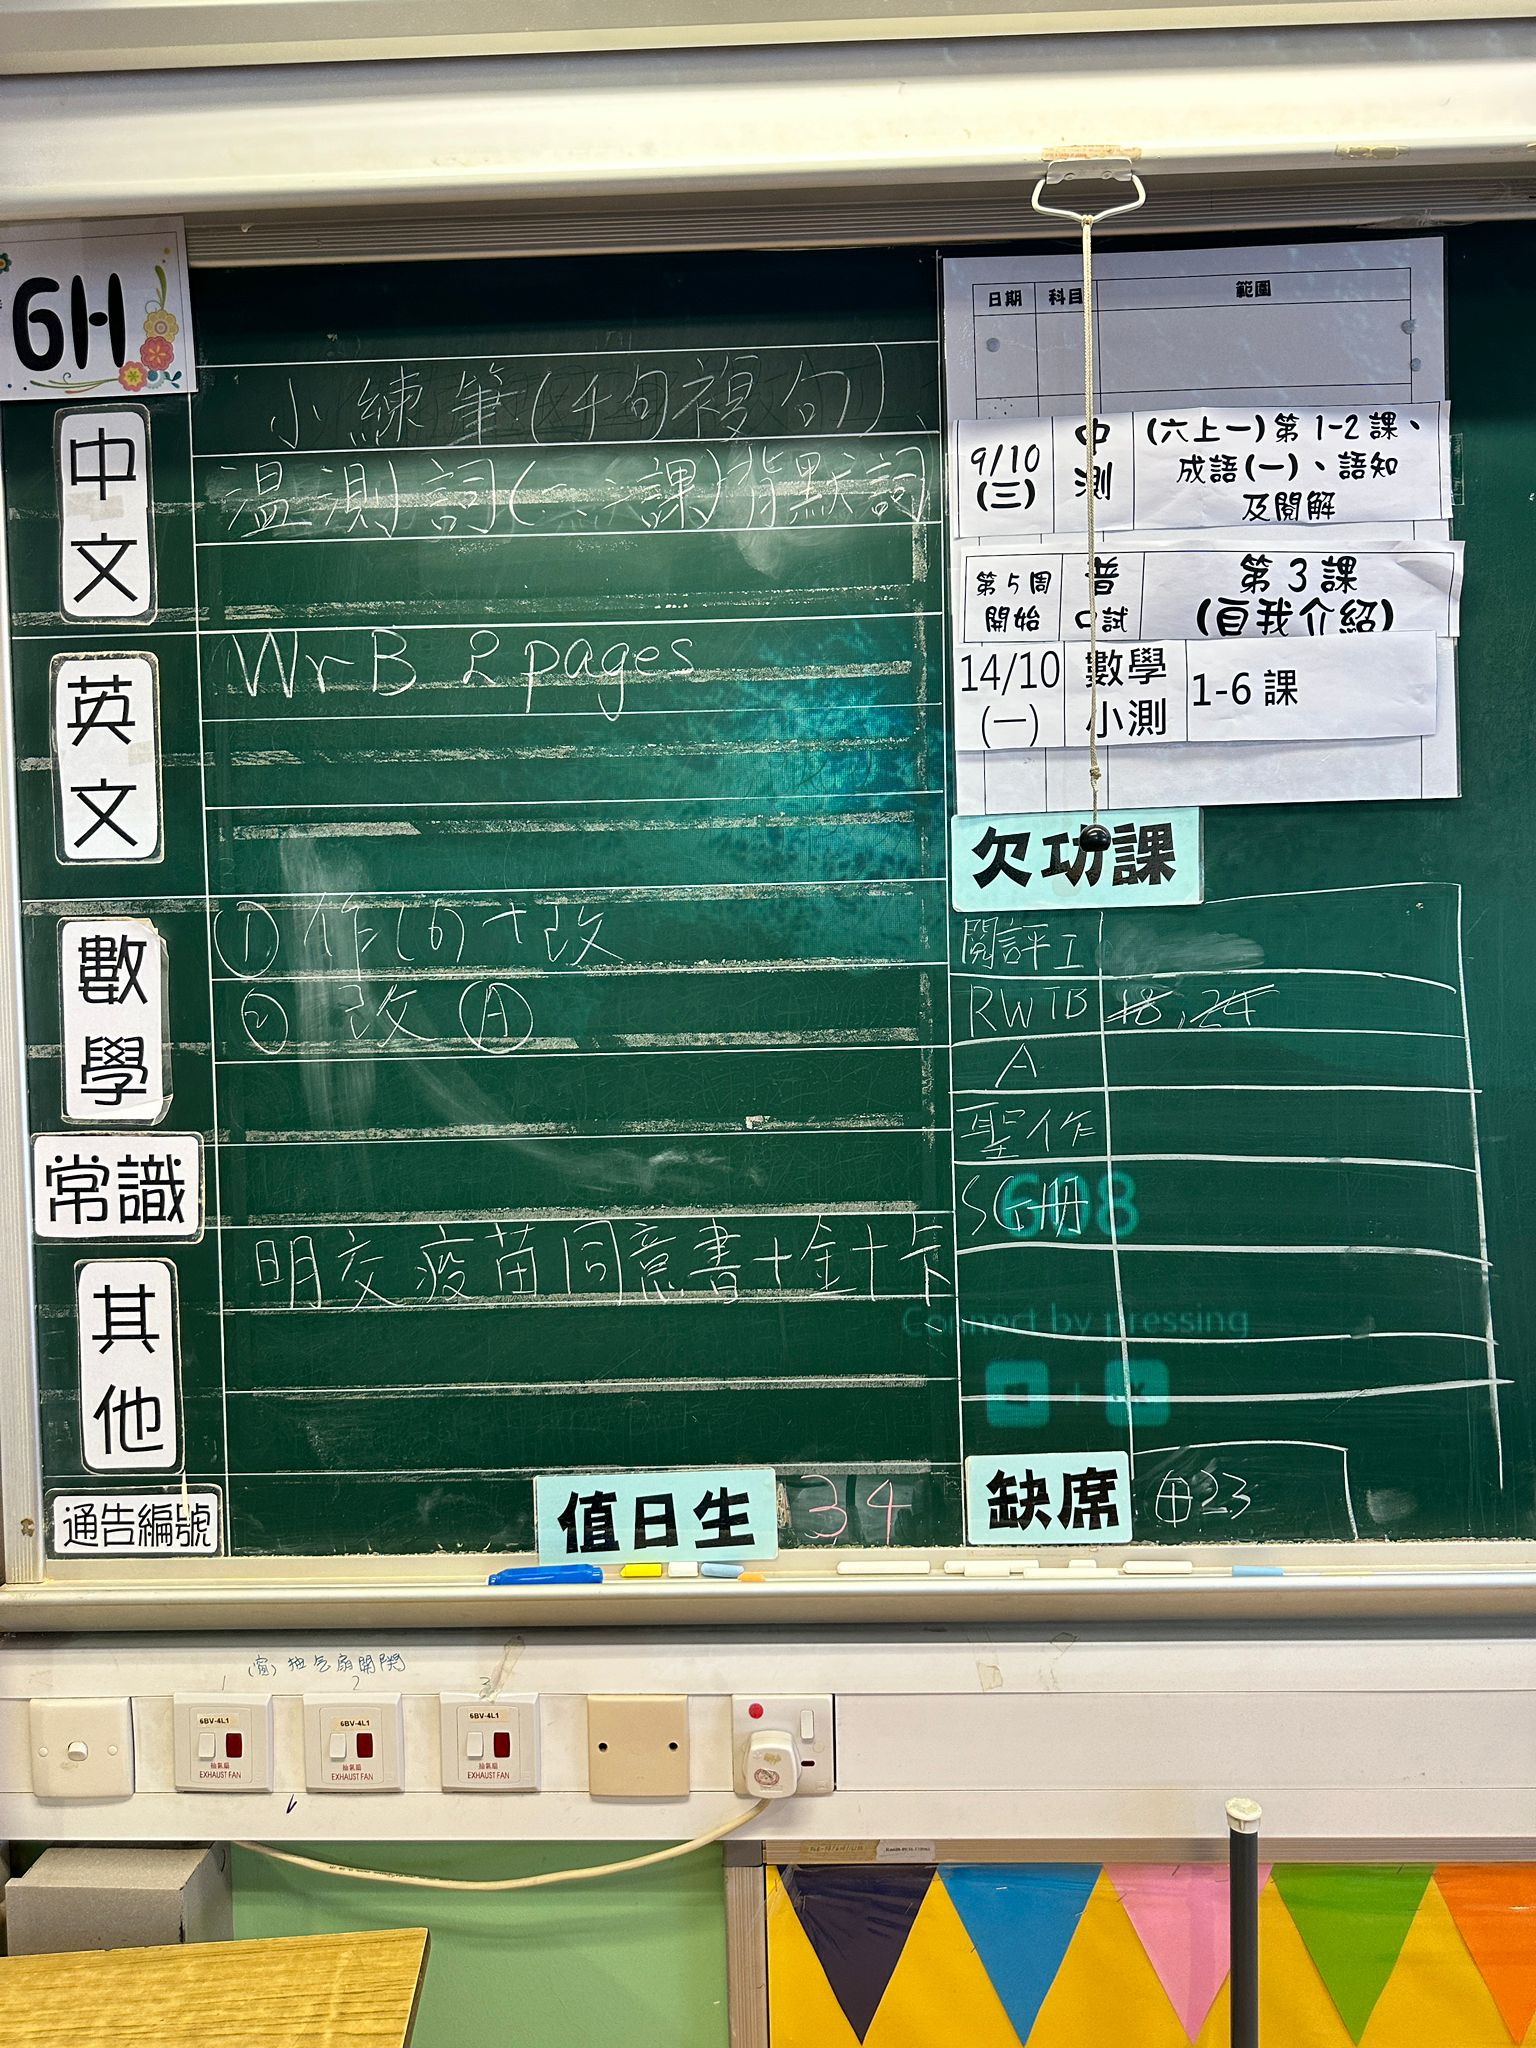 6H
中文
小練筆(4句複句)
溫測詞(一、二課)背默詞
英文
WrB 2 pages
數學
① 作(6)+改
② 改Ⓐ
常識
其他
明交疫苗同意書+金+卡
通告編號
值日生
3,4
日期 科目 範圍
9/10
(三)
中
測
(六上一)第1-2課、
成語(一)、語知
及閱解
第5周
開始
普
口試
第3課
(自我介紹)
14/10
(一)
數學
小測
1-6課
欠功課
閱評工
RWTB 18, 24
A
聖作
SG冊
608
Connect by pressing
OK
缺席
23
(窗)抽气扇開關
1 2 3
6BV-4L1
抽氣扇
EXHAUST FAN
6BV-4L1
抽氣扇
EXHAUST FAN
6BV-4L1
抽氣扇
EXHAUST FAN